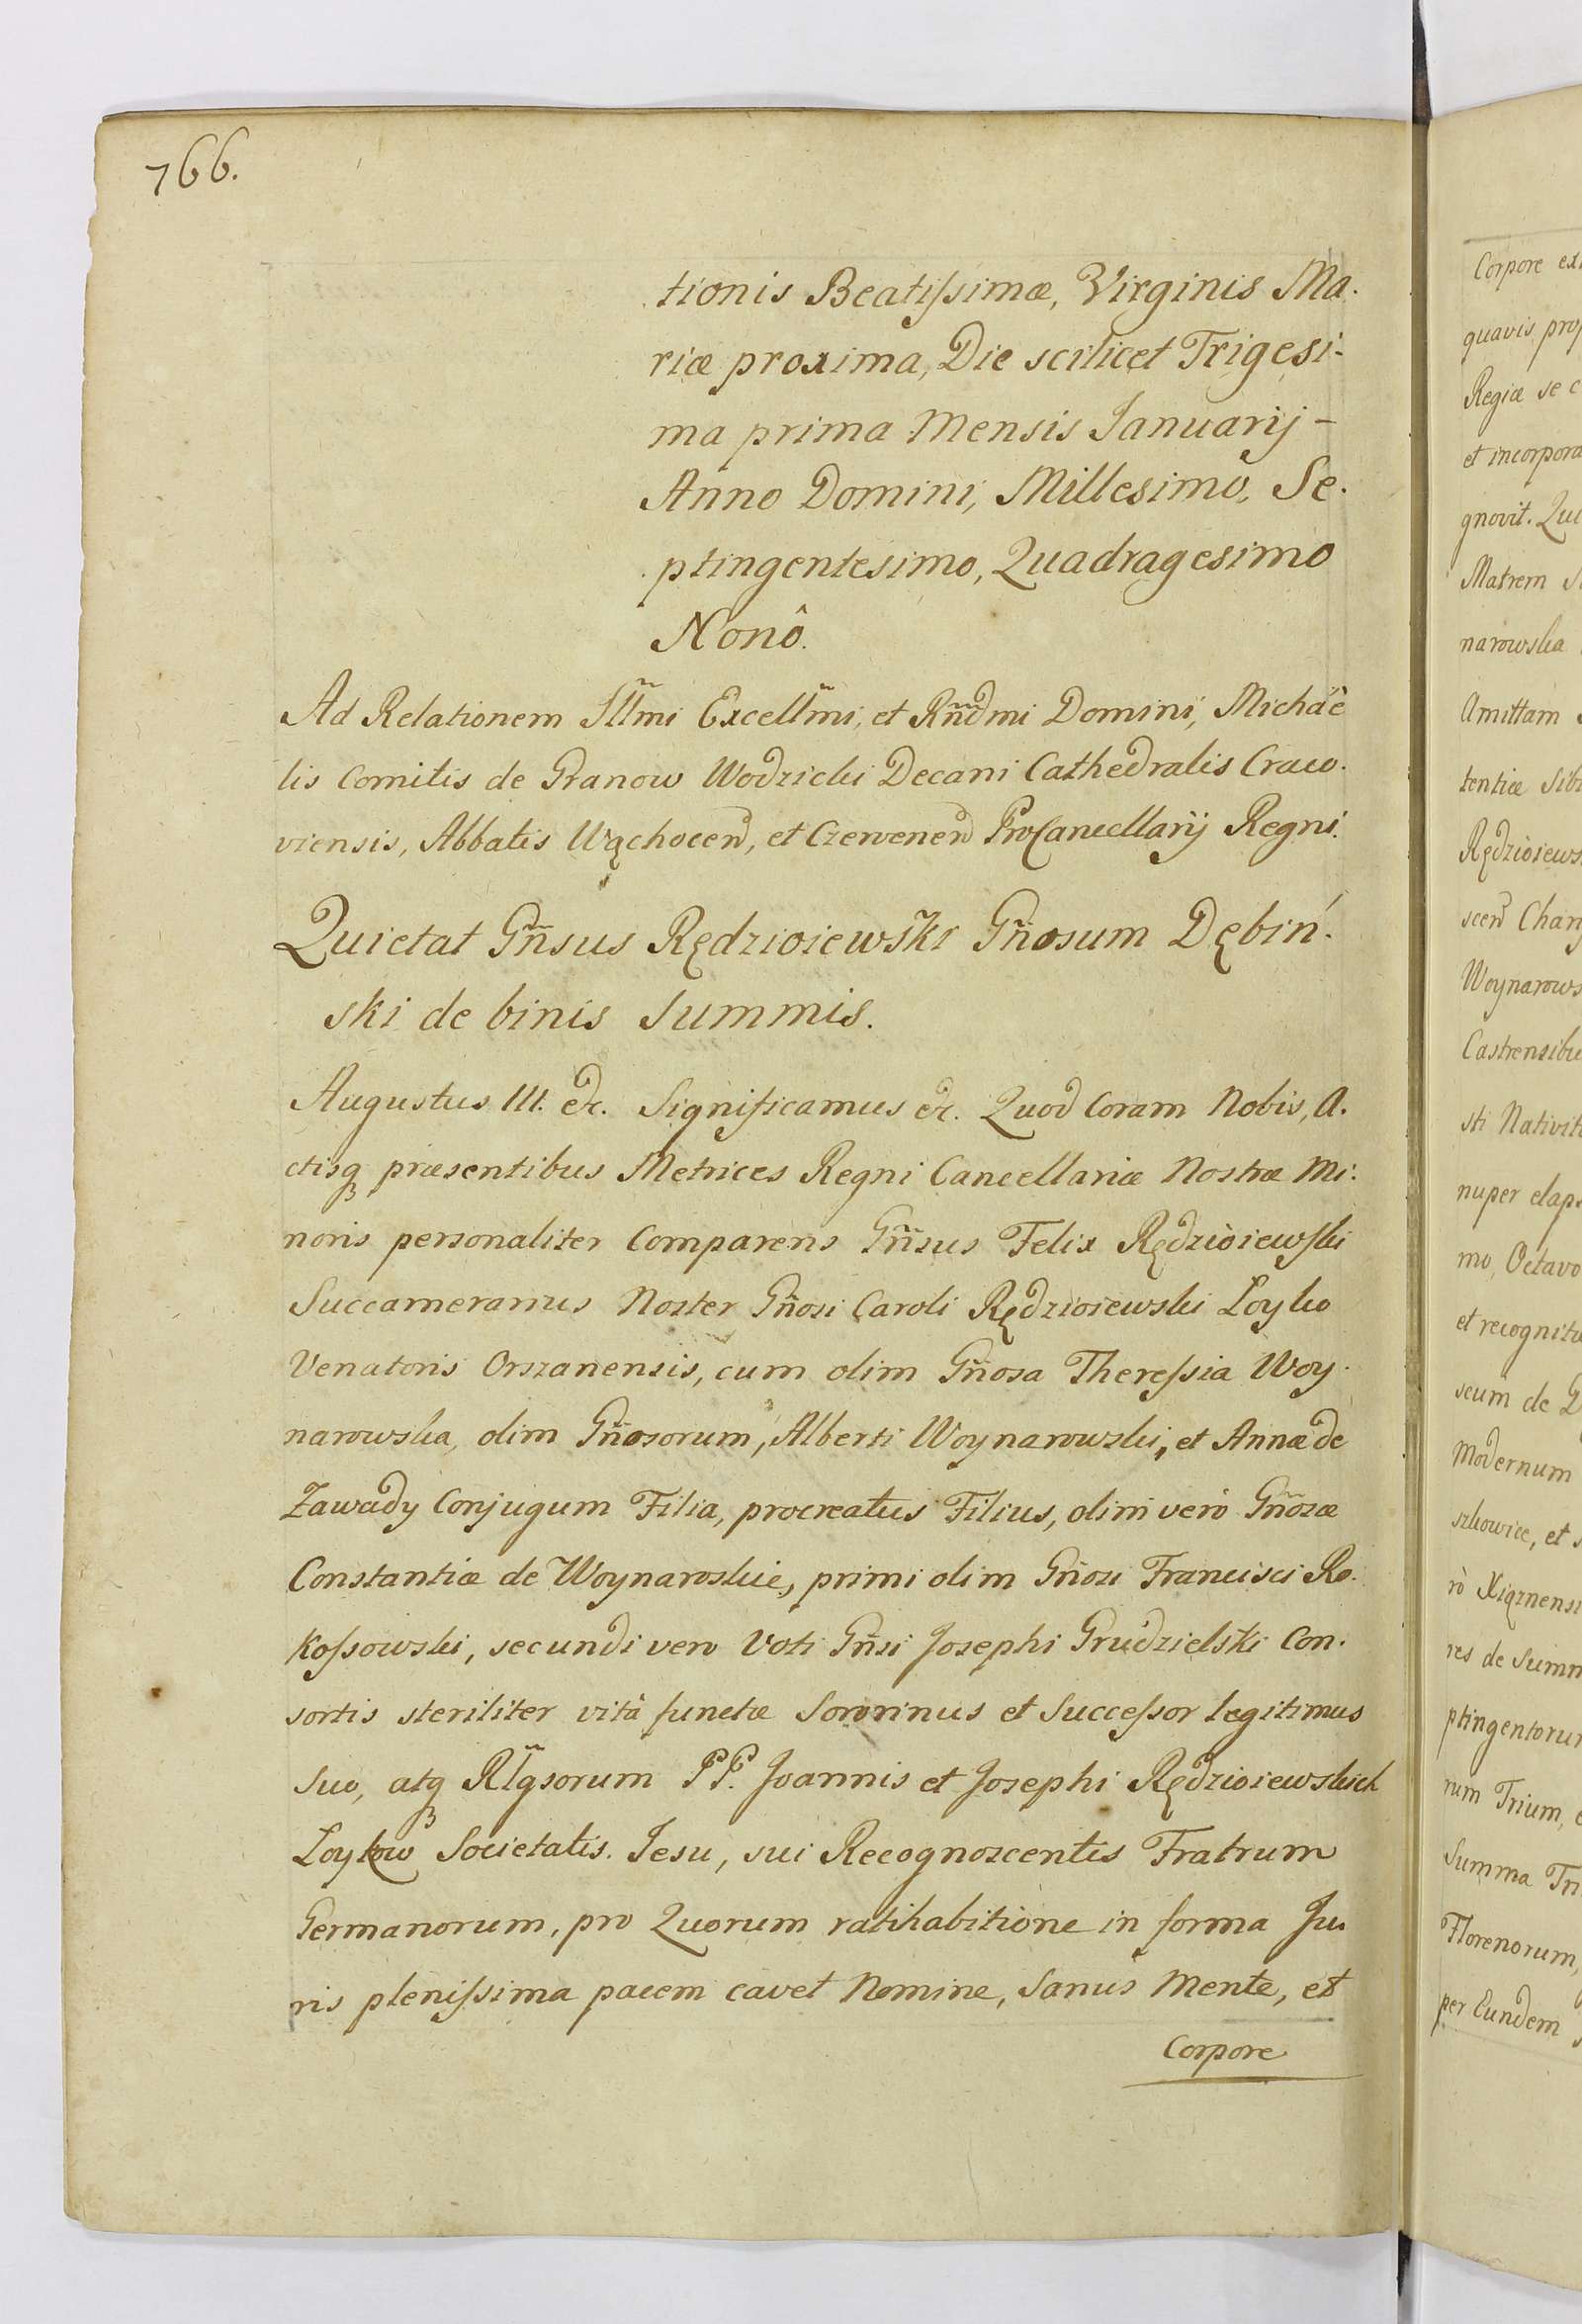 766.
tionis Beatissimæ, Virginis Ma.
riæ proxima, Die scilicet Trigesi-
ma prima Mensis Januarij -
Anno Domini, Millesimo, Se.
ptingentesimo, Quadragesimo
Nonô.
Ad Relationem Illm̃i Excellm̃i, et Rñdmi Domini, Michaë
lis Comitis de Granow Wodzicki Decani Cathedralis Craco.
viensis, Abbatis Wąchocen, et Czerwenen ProCancellarij Regni.
Quietat Gñsus Rędzioiewski Gñosum Dębiń.
ski de binis Summis.
Augustus III. &c. Significamus &c. Quod Coram Nobis, A.
ctisq præsentibus Metrices Regni Cancellariæ Nostræ Mi:
noris personaliter Comparens Gñsus Felix Rędzioiewski
Succamerarius Noster Gñosi Caroli Rędzioiewski Loyko
Venatoris Orszanensis, cum olim Gñosa Theressia Woy.
narowska, olim Gñosorum, Alberti Woynarowski, et Annæ de
Zawady Conjugum Filia, procreatus Filius, olim verò Gñosæ
Constantiæ de Woynaroskie, primi olim Gñosi Francisci Ro.
kossowski, secundi vero Voti Gñsi Josephi Grudzielski Con.
sortis steriliter vitâ functæ Sororinus et Successor legitimus
suo, atq Rlgsorum PP. Joannis et Josephi Rędzioiewskich
Loykow Societatis. Jesu, sui Recognoscentis Fratrum
Germanorum, pro Quorum ratihabitione in forma Ju.
ris plenissima pacem cavet Nomine, Sanus Mente, et
Corpore
Corpore
quavis
Regiæ se
et incorpora
gnovit.
Matrem
narowska
Amittam
tentiæ
Rędzioiews
Woynarows
Castrensibu
sti Nativit
nuper elaps
mo, Octavo
et recognit
seum de
Modernum
szkowice, et
res de Summ
ptingentorum
rum Trium,
Summa
Florenorum,
per Eundem